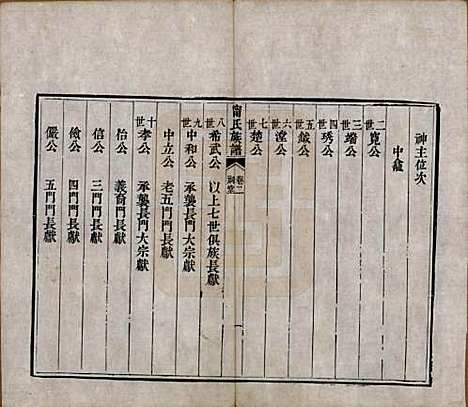 神主位次
中龕
二世寬公
三世端公
四世琇公
五世鉞公
六世瀅公
七世楚公
甯氏族譜 卷二 祠堂 一
八世希武公 以上七世俱族長獻
九世中和公 承襲長門大宗獻
中立公 老五門門長獻
十世孝公 承襲長門大宗獻
怡公 義裔門門長獻
信公 三門門長獻
儉公 四門門長獻
儼公 五門門長獻